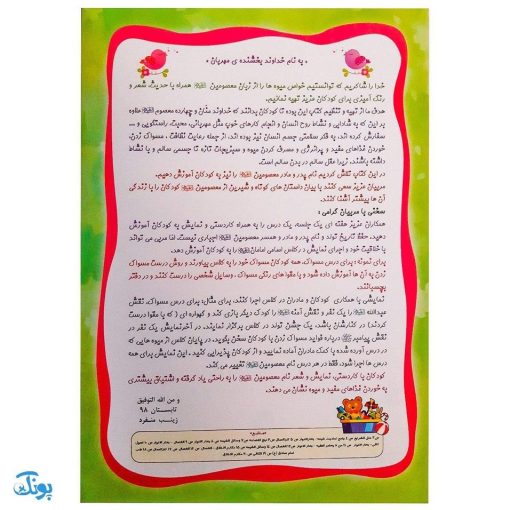 « به نام خداوند بخشنده ی مهربان »
خدا را شاکریم که توانستیم خواص میوه ها را از زبان معصومین همراه با حدیث شعر و
رنگ آمیزی برای کودکان عزیز تهیه نماییم.
هدف ما از تهیه و تنظیم کتاب این بوده تا کودکان بدانند که خداوند منان و چهارده معصوم علاوه
بر این که به شادابی و نشاط روح انسان و انجام کارهای خوب مثل مهربانی، محبت، راستگویی و ...
سفارش کرده اند. به فکر سلامتی جسم انسان نیز بوده اند. از جمله رعایت نظافت، مسواک زدن،
خوردن غذاهای مفید و پرانرژی و مصرف کردن میوه و سبزیجات تازه تا جسمی سالم و با نشاط
داشته باشند. زیرا عقل سالم در بدن سالم است.
در این کتاب تلاش کردیم نام پدر و مادر معصومین را نیز به کودکان آموزش دهیم.
مربیان عزیز سعی کنند با بیان داستان های کوتاه و شیرین از معصومین کودکان را با زندگی
آن ها بیشتر آشنا کنند.
سخنی با مربیان گرامی :
همکاران عزیز هفته ای یک جلسه، یک درس را به همراه کاردستی و نمایش به کودکان آموزش
دهید. حفظ تاریخ تولد و نام پدر و مادر و همسر معصومین اجباری نیست. اما مربی می تواند
با خلاقیت خود و اجرای نمایش در کلاس اسامی امامان را به کودکان آموزش دهد.
برای نمونه : برای درس مسواک، همه کودکان مسواک خود را به کلاس بیاورند و روش درست مسواک
زدن به آن ها آموزش داده شود و با مقوا های رنگی مسواک، وسایل شخصی را درست کنند و در دفتر
بچسبانند.
نمایشی با همکاری کودکان و مادران در کلاس اجرا کنند. برای مثال: برای درس مسواک، نقش
عبدالله را یک نفر و نقش آمنه را کودک دیگر بازی کند و گهواره ای ( که با مقوا درست
کردند) در کنارشان باشد. یک جشن تولد در کلاس برگزار نمایند. در آخر نمایش یک نفر در
نقش پیامبر درباره فواید مسواک زدن با کودکان سخن بگوید. در پایان کلاس از میوه هایی که
در درس آورده شده با کمک مادران آماده نمایید و از کودکان پذیرایی کنید. این نمایش برای همه
درس ها اجرا شود. فقط در هر درس نام معصومین تغییر می کند.
کودکان با کاردستی، نمایش و شعر نام معصومین را به راحتی یاد گرفته و اشتیاق بیشتری
به خوردن غذاهای مفید و میوه نشان می دهند.
و من الله التوفیق
تابستان ۹۸
زینب منفرد
منابع:
پونک